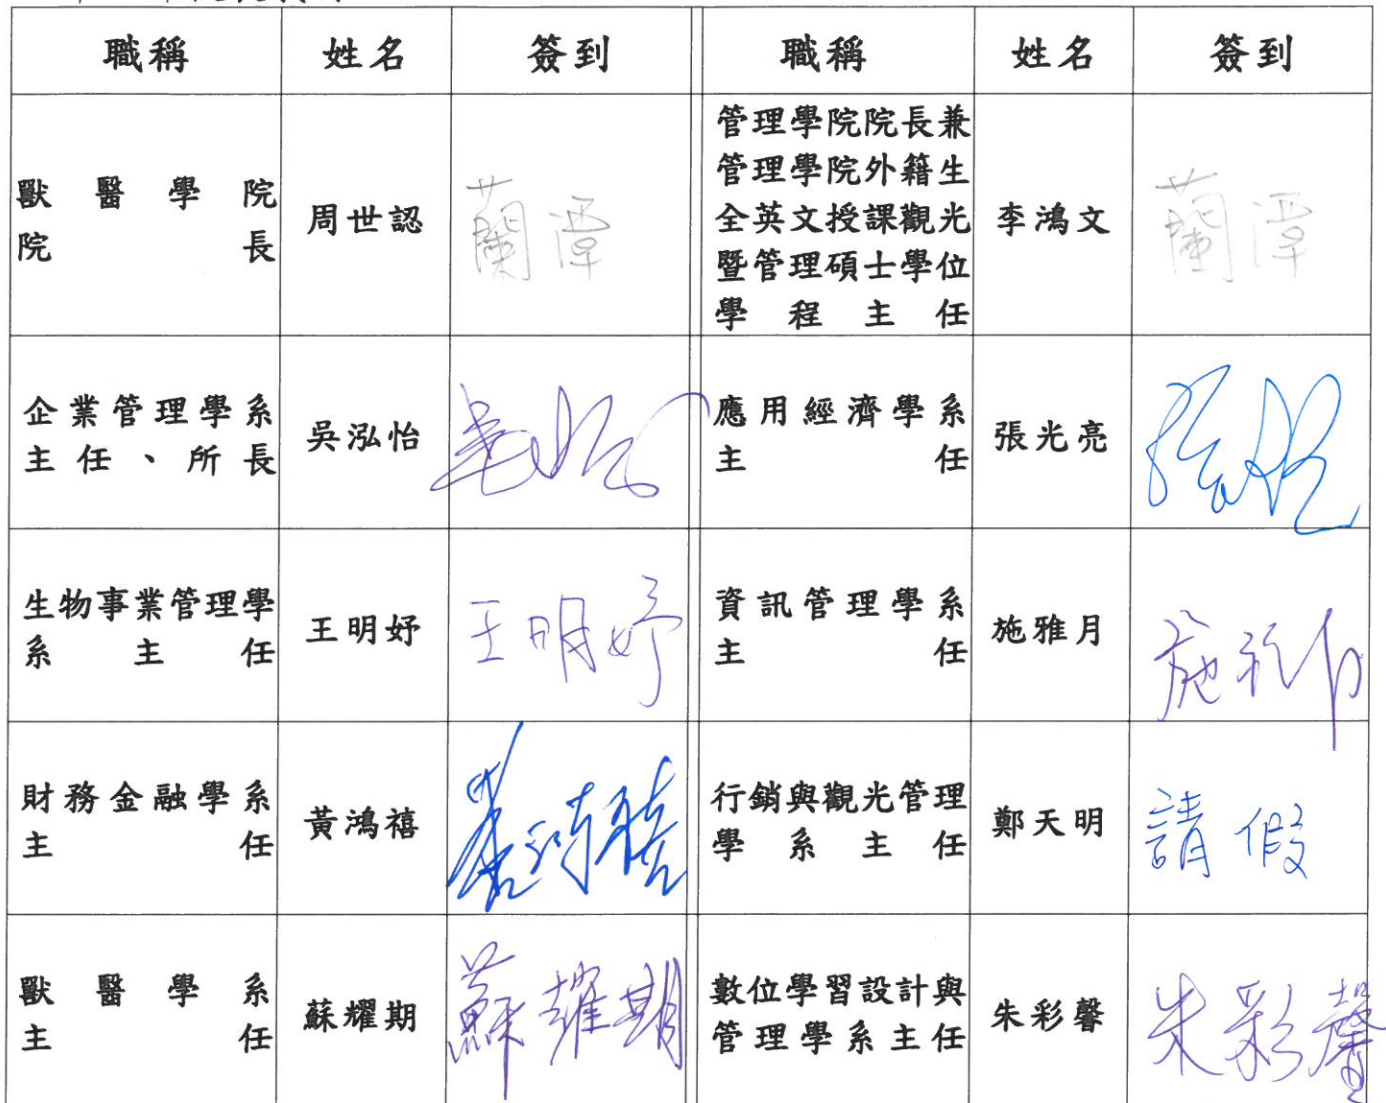 職稱 姓名 簽到 職稱 姓名 簽到
獸醫學院
院長
周世認
蘭潭
管理學院院長兼
管理學院外籍生
全英文授課觀光
暨管理碩士學位
學程主任
李鴻文
蘭潭
企業管理學系
主任、所長
吳泓怡
應用經濟學系
主任
張光亮
生物事業管理學
系主任
王明妤
王明妤
資訊管理學系
主任
施雅月
施雅月
財務金融學系
主任
黃鴻禧
黃鴻禧
行銷與觀光管理
學系主任
鄭天明
請假
獸醫學系
主任
蘇耀期
蘇耀期
數位學習設計與
管理學系主任
朱彩馨
朱彩馨